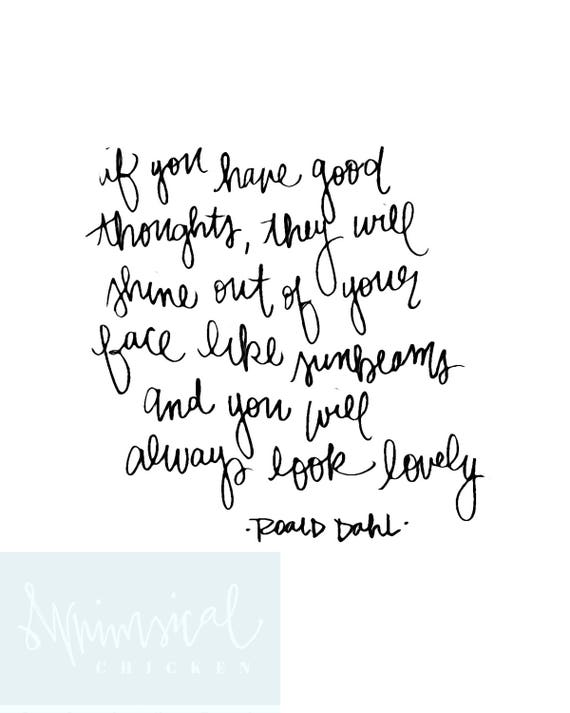 if you have good
thoughts, they will
shine out of your
face like sunbeams
and you will
always look lovely
·ROALD DAHL·
Whimsical
CHICKEN